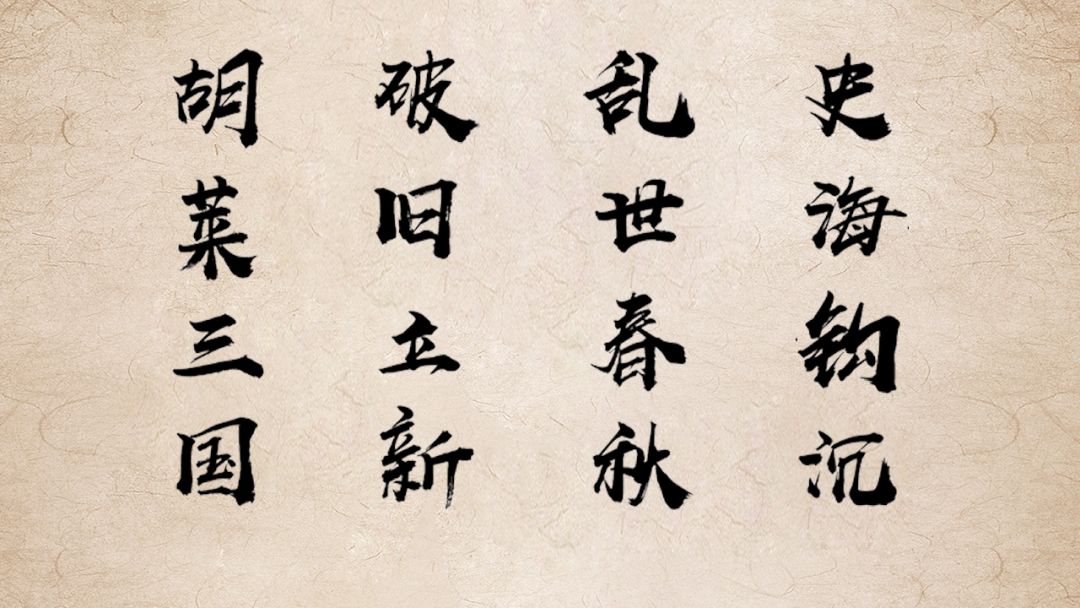 史海钩沉
乱世春秋
破旧立新
胡菜三国